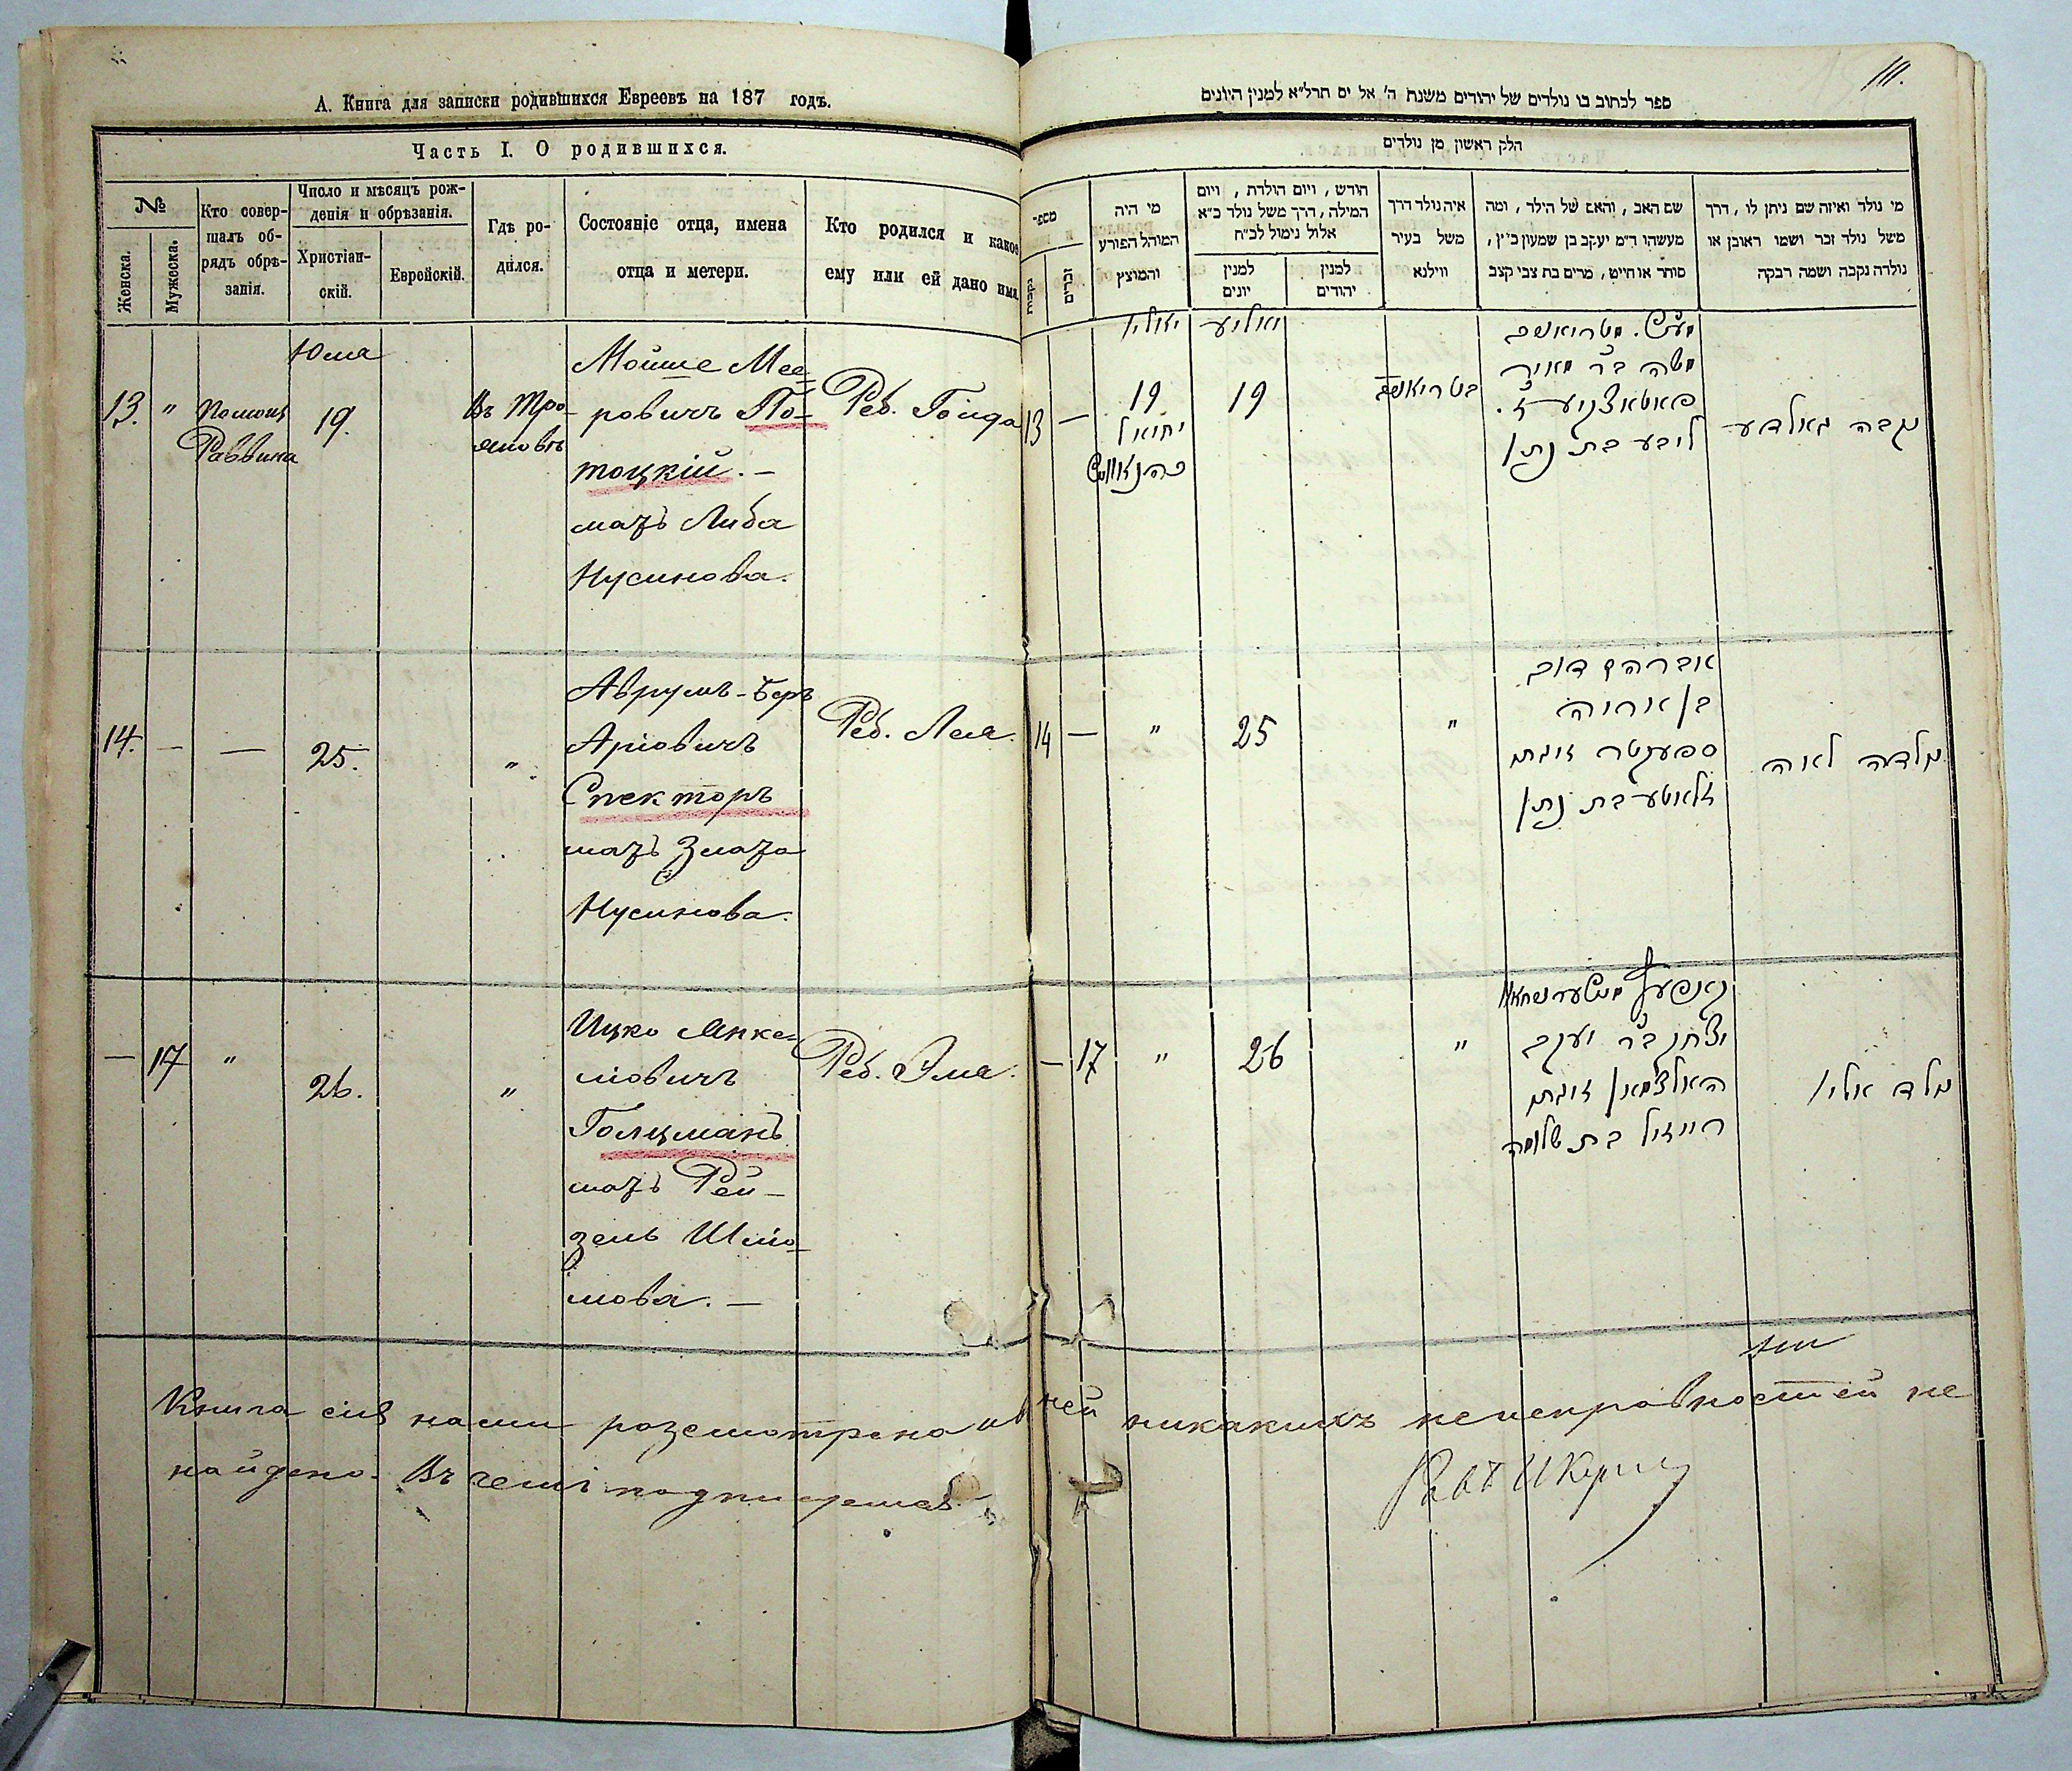 А. Книга для записки родившихся Евреевъ на 187 годъ.
Часть I. О родившихся.
№
Женска.
Мужеска.
Кто совер-
шалъ об-
рядъ обрѣ-
занія.
Число и мѣсяцъ рож-
денія и обрѣзанія.
Христіан-
скій.
Еврейскій.
Гдѣ ро-
дился.
Состояніе отца, имена
отца и метери.
Кто родился и какое
ему или ей дано имя.
13.
"
Помощ
Раввина
Юля
19.
Въ Тро-
яновѣ
Мойше Мее-
ровичъ По-
тоцкій. –
мать Либа
Нусинова.
Реб. Гольда
14.
—
—
25.
"
Аврумъ-Беръ
Аріовичъ
Спекторъ
мать Злата
Нусинова.
Реб. Лея.
—
17
"
26.
"
Ицко Янке-
Голцманъ
мать Рей-
зель Шліо-
мова. –
Реб.
Книга сія нами розсмотрена и въ
найдено. Въ чемъ подписуемся. –
111.
ספר לכתוב בו נולדים של יהודים משנת ה' אל ים תרל"א למנין היונים
חלק ראשון מן נולדים
מספר
נקבות
זכרים
מי היה
המוהל הפורע
והמוצץ
חודש, ויום הולדת, ויום
המילה, דרך משל נולד כ"א
אלול נימול לכ"ח
למנין
יונים
למנין
יהודים
איה נולד דרך
משל בעיר
ווילנא
שם האב, והאם של הילד, ומה
מעשהו ה"מ יעקב בן שמעון כ"ץ,
סוחר או חייט, מרים בת צבי קצב
מי נולד ואיזה שם ניתן לו, דרך
משל נולד זכר ושמו ראובן או
נולדה נקבה ושמה רבקה
13
—
19
יחיאל
יאליע
19
משה ב"ר מאיר
ליבע בת נתן
נקבה גאלדע
14
—
"
25
"
אברהם דוב
בן אריה
ספעקטר זוגתו
זלאטע בת נתן
ילדה לאה
—
17
"
26
"
יצחק ב"ר יעקב
האלצמאן זוגתו
רייזיל בת שלמה
ילד
ней никакихъ неисправностей не